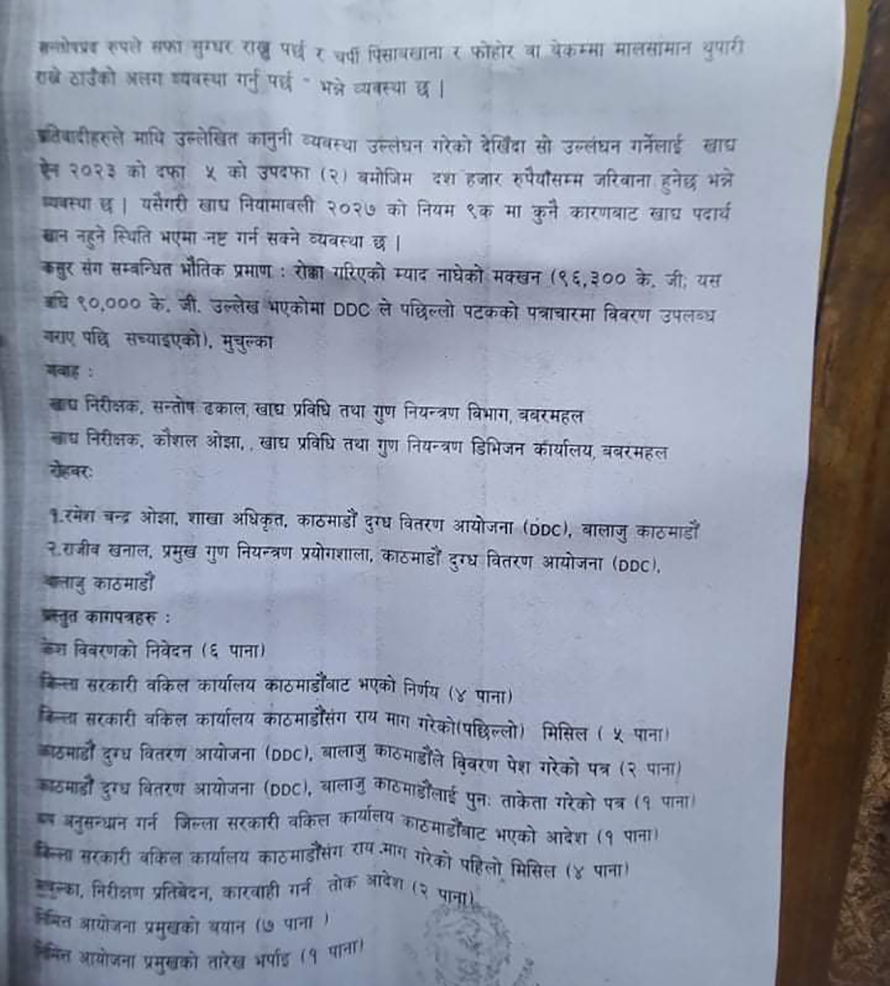 सन्तोषप्रद रुपले सफा सुग्घर राख्नु पर्छ र चर्पी पिसाबखाना र फोहोर वा येकम्मा मालसामान थुपारी
राख्ने ठाउँको अलग व्यवस्था गर्नु पर्छ " भन्ने व्यवस्था छ |
प्रतिवादीहरुले माथि उल्लेखित कानुनी व्यवस्था उल्लंघन गरेको देखिँदा सो उल्लंघन गर्नेलाई खाद्य
ऐन २०२३ को दफा ५ को उपदफा (२) बमोजिम दश हजार रुपैयाँसम्म जरिवाना हुनेछ भन्ने
व्यवस्था छ | यसैगरी खाद्य नियामावली २०२७ को नियम ९क मा कुनै कारणबाट खाद्य पदार्थ
खान नहुने स्थिति भएमा नष्ट गर्न सक्ने व्यवस्था छ |
कसुर संग सम्बन्धित भौतिक प्रमाण : रोक्का गरिएको म्याद नाघेको मक्खन (९६,३०० के. जी; यस
अघि ९०,००० के. जी. उल्लेख भएकोमा DDC ले पछिल्लो पटकको पत्राचारमा विवरण उपलब्ध
गराए पछि सच्याइएको), मुचुल्का
गवाह :
खाद्य निरीक्षक, सन्तोष ढकाल, खाद्य प्रविधि तथा गुण नियन्त्रण विभाग, बबरमहल
खाद्य निरीक्षक, कौशल ओझा, , खाद्य प्रविधि तथा गुण नियन्त्रण डिभिजन कार्यालय, बबरमहल
रोहबरः
१.रमेश चन्द्र ओझा, शाखा अधिकृत, काठमाडौं दुग्ध वितरण आयोजना (DDC), बालाजु काठमाडौं
२.राजीव खनाल, प्रमुख गुण नियन्त्रण प्रयोगशाला, काठमाडौं दुग्ध वितरण आयोजना (DDC),
बालाजु काठमाडौं
प्रस्तुत कागपत्रहरु :
केश विवरणको निवेदन (६ पाना)
जिल्ला सरकारी वकिल कार्यालय काठमाडौंबाट भएको निर्णय (४ पाना)
जिल्ला सरकारी वकिल कार्यालय काठमाडौंसंग राय माग गरेको(पछिल्लो) मिसिल ( ५ पाना)
काठमाडौं दुग्ध वितरण आयोजना (DDC), बालाजु काठमाडौंले विवरण पेश गरेको पत्र (२ पाना)
काठमाडौं दुग्ध वितरण आयोजना (DDC), बालाजु काठमाडौंलाई पुनः ताकेता गरेको पत्र (१ पाना)
थप अनुसन्धान गर्न जिल्ला सरकारी वकिल कार्यालय काठमाडौंबाट भएको आदेश (१ पाना)
जिल्ला सरकारी वकिल कार्यालय काठमाडौंसंग राय माग गरेको पहिलो मिसिल (४ पाना)
मुचुल्का, निरीक्षण प्रतिवेदन, कारवाही गर्न तोक आदेश (२ पाना)
निमित्त आयोजना प्रमुखको बयान (७ पाना )
निमित्त आयोजना प्रमुखको तारेख भर्पाइ (१ पाना)